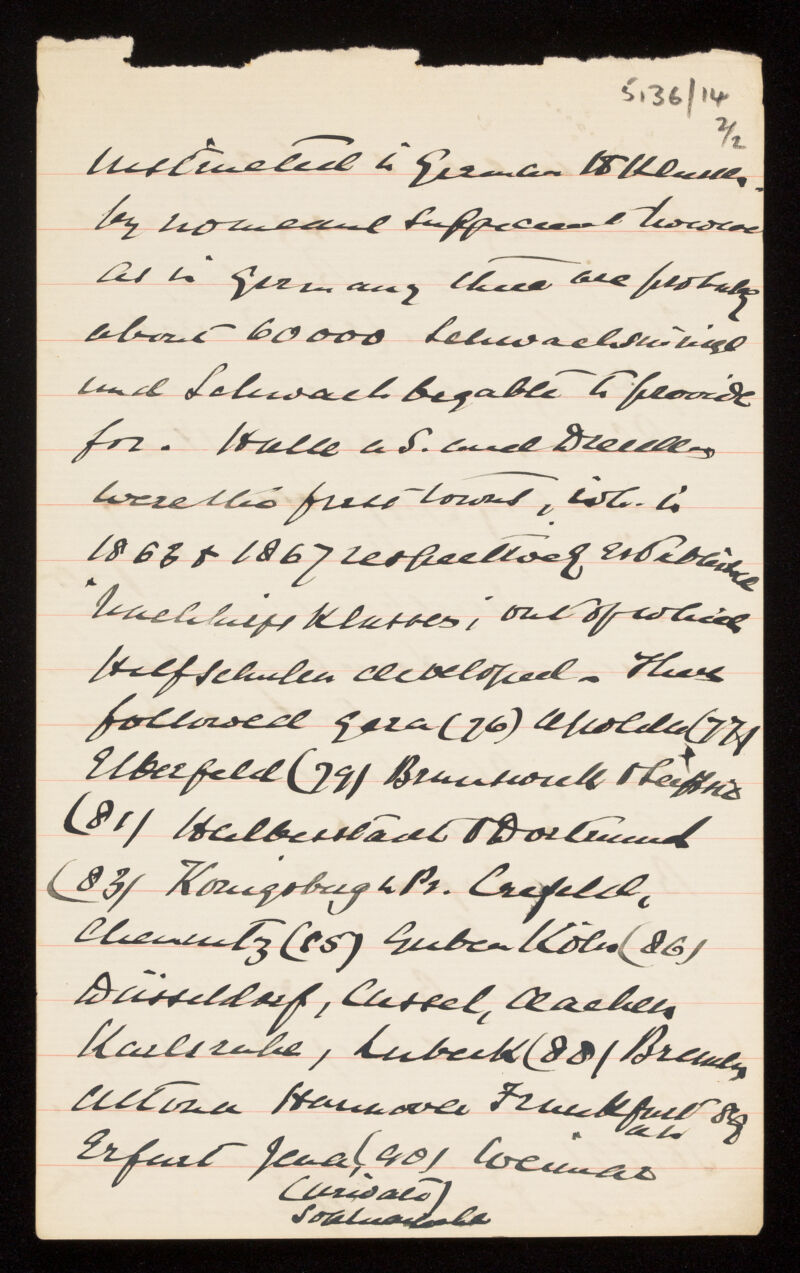 5136/14
2/2
instructed in German H Klassen.
by no means sufficient however
as in Germany there are probably
about 60000 Schwachsinnige
und Schwachbegabte to provide
for. Halle a S. and Dresden
were the first towns, wh. in
1863 & 1867 respectively established
"Nachhilfs Klassen; out of which
Hilfschulen developed. There
followed Gera (76) Apolda (77)
Elberfeld (79) Brunswick & Leipzig
(81) Halberstadt & Dortmund
(83) Konigsburg Pr. Crefeld,
Chemnitz (85) Guben Köln (86)
Düsseldorf, Cassel, Aachen
Karlsruhe, Lubeck (88) Bremen
Altona Hannover Frankfurt 89
Erfurt Jena (90) Weimar
(private)